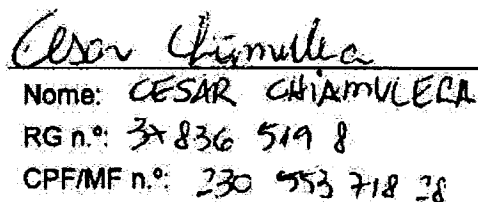 Cesar Chiamulera
Nome: CESAR CHIAMULERA
RG n.º: 37 836 519 8
CPF/MF n.º: 230 553 718 28